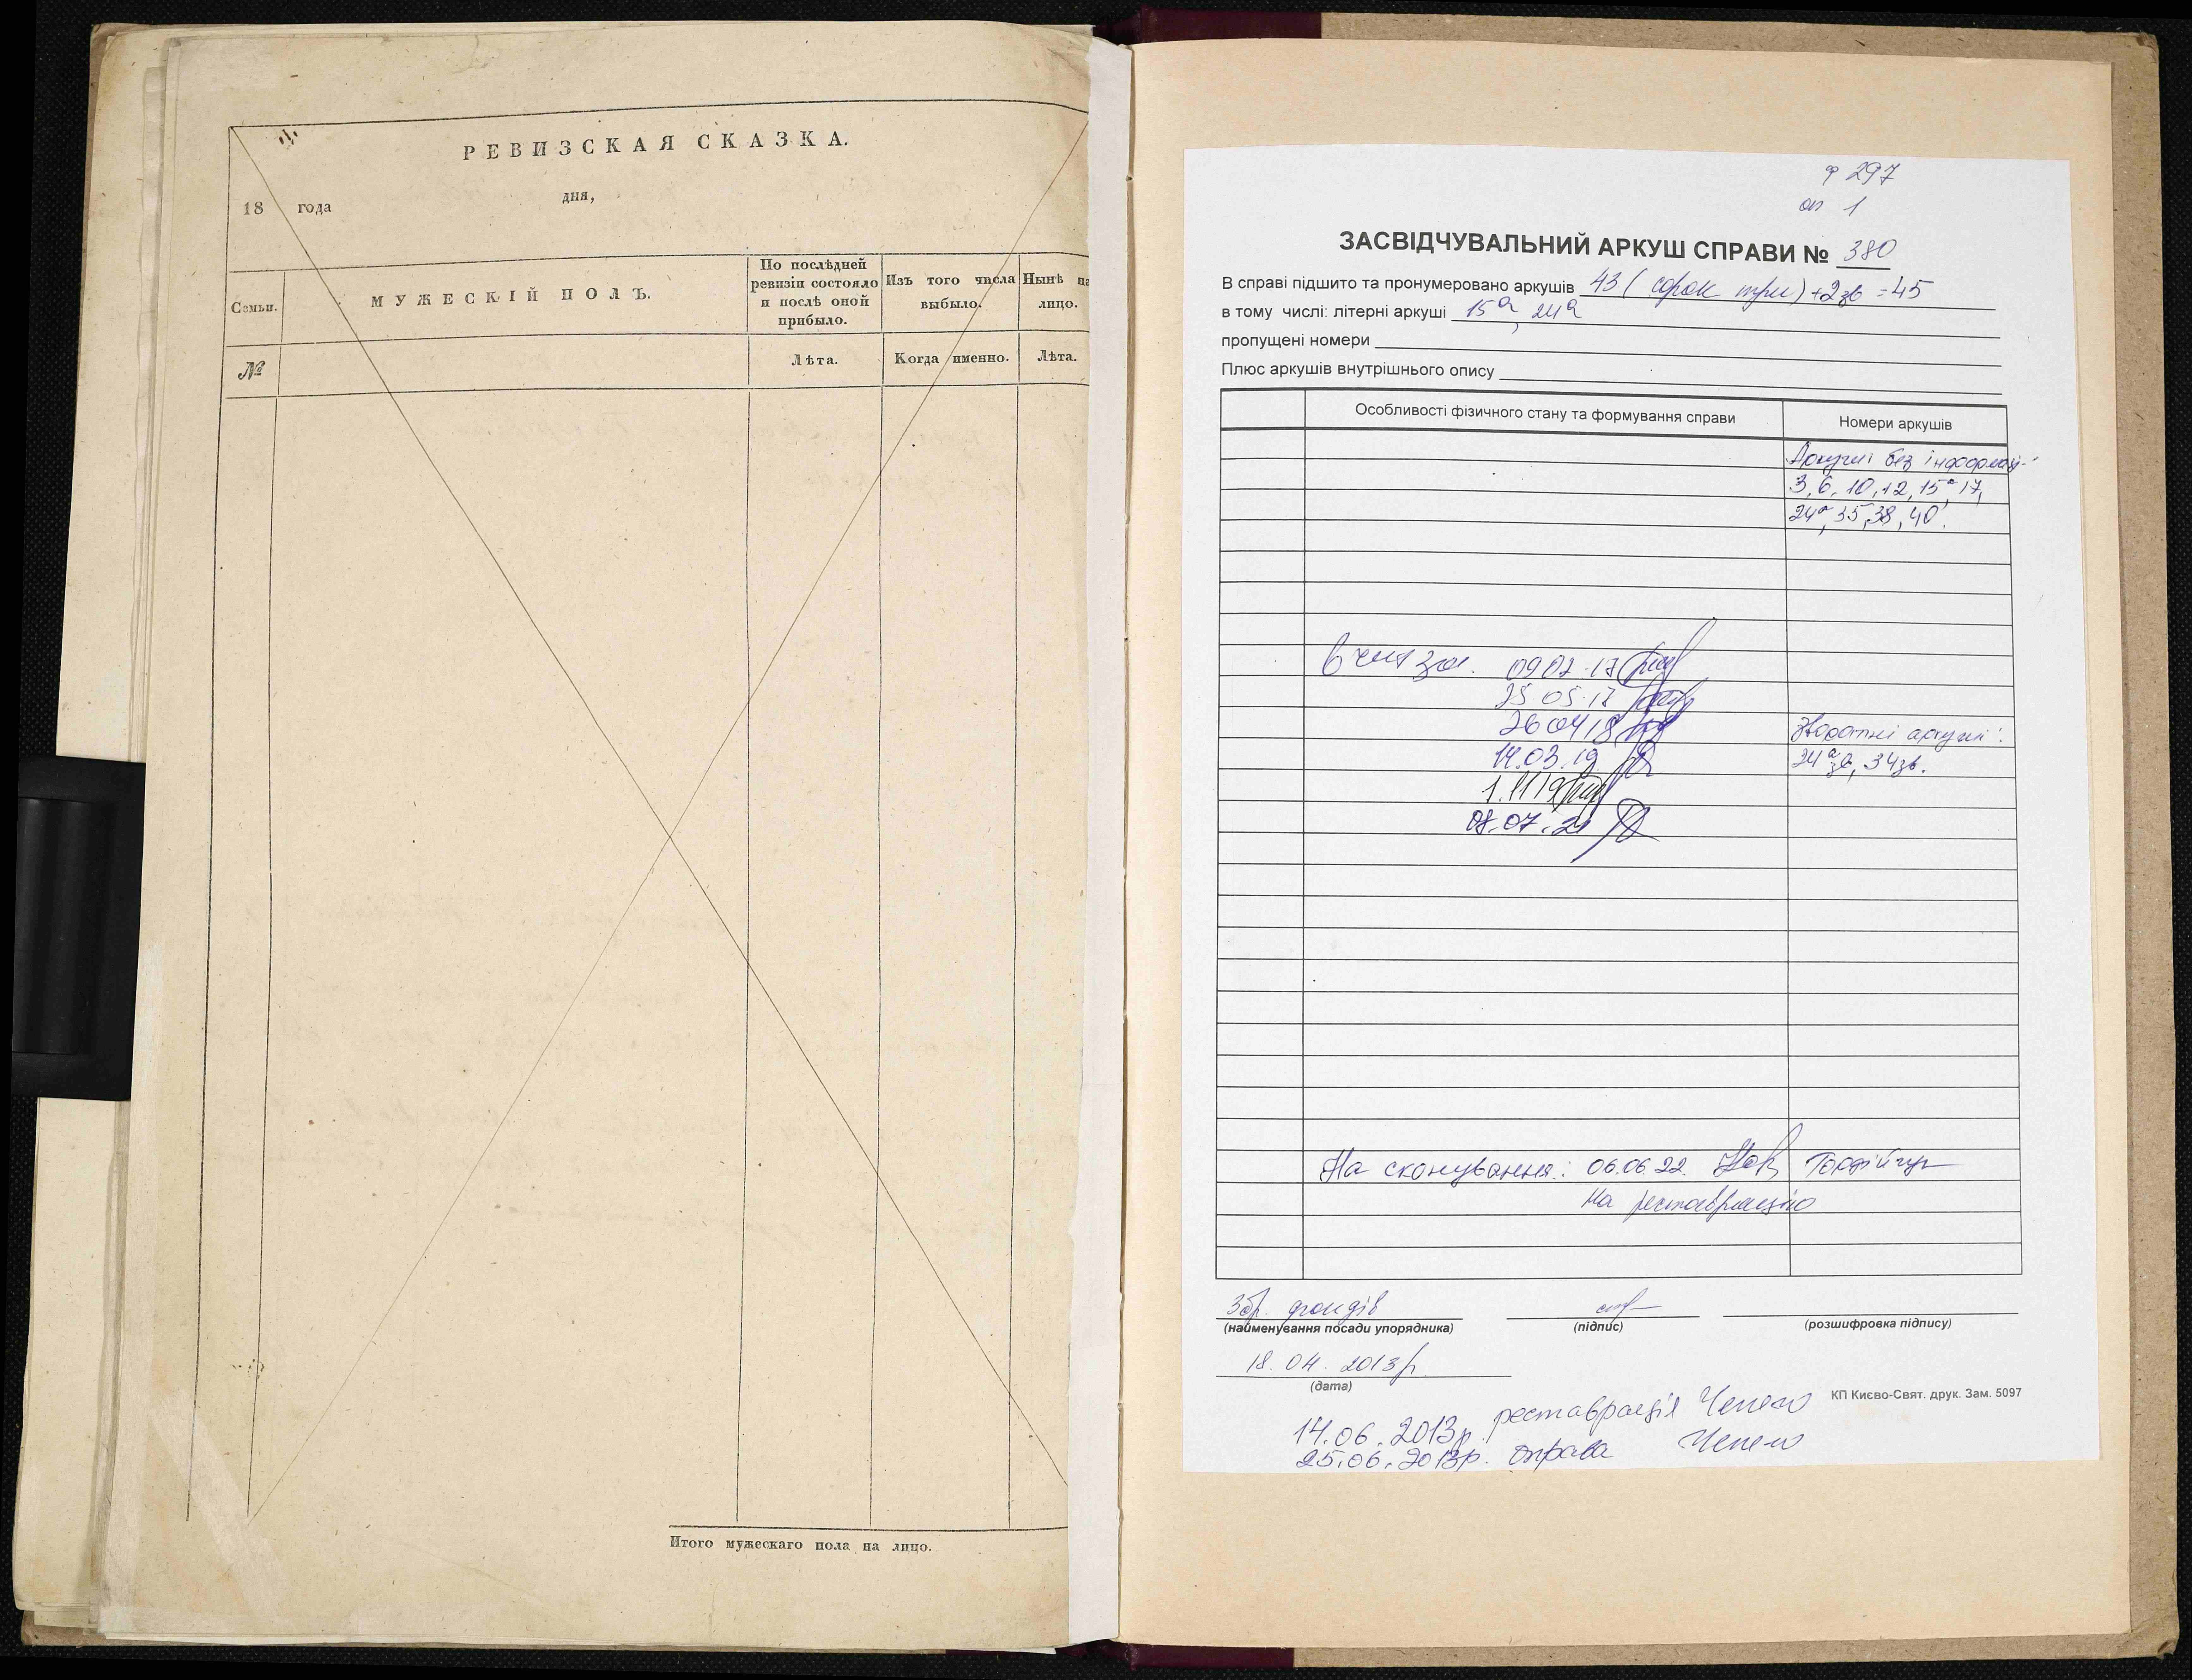 РЕВИЗСКАЯ СКАЗКА.
18 года дня,
Семьи.
МУЖЕСКІЙ ПОЛЪ.
По послѣдней ревизіи состояло и послѣ оной прибыло.
Изъ того числа выбыло.
Нынѣ на лицо.
№
Лѣта.
Когда именно.
Лѣта.
Итого мужескаго пола на лицо.
ф 297
оп 1
ЗАСВІДЧУВАЛЬНИЙ АРКУШ СПРАВИ № 380
В справі підшито та пронумеровано аркушів 43 (сорок три) +2зв =45
в тому числі: літерні аркуші 15а, 24а
пропущені номери
Плюс аркушів внутрішнього опису
Особливості фізичного стану та формування справи
Номери аркушів
Аркуші без інформації
3, 6, 10, 12, 15а, 17,
24а, 35, 38, 40.
В чит зал. 09 02 17
25 05 17
26 04 18
14.03.19
1.11 19
08.07.21
Зворотні аркуші:
24а зв, 34зв.
На сканування: 06.06.22. Гордійчук
на реставрацію
Збр. фондів
(найменування посади упорядника)
(підпис)
(розшифровка підпису)
18. 04. 2013 р.
(дата)
КП Києво-Свят. друк. Зам. 5097
14.06.2013р. реставрація
25.06.2013р. оправа